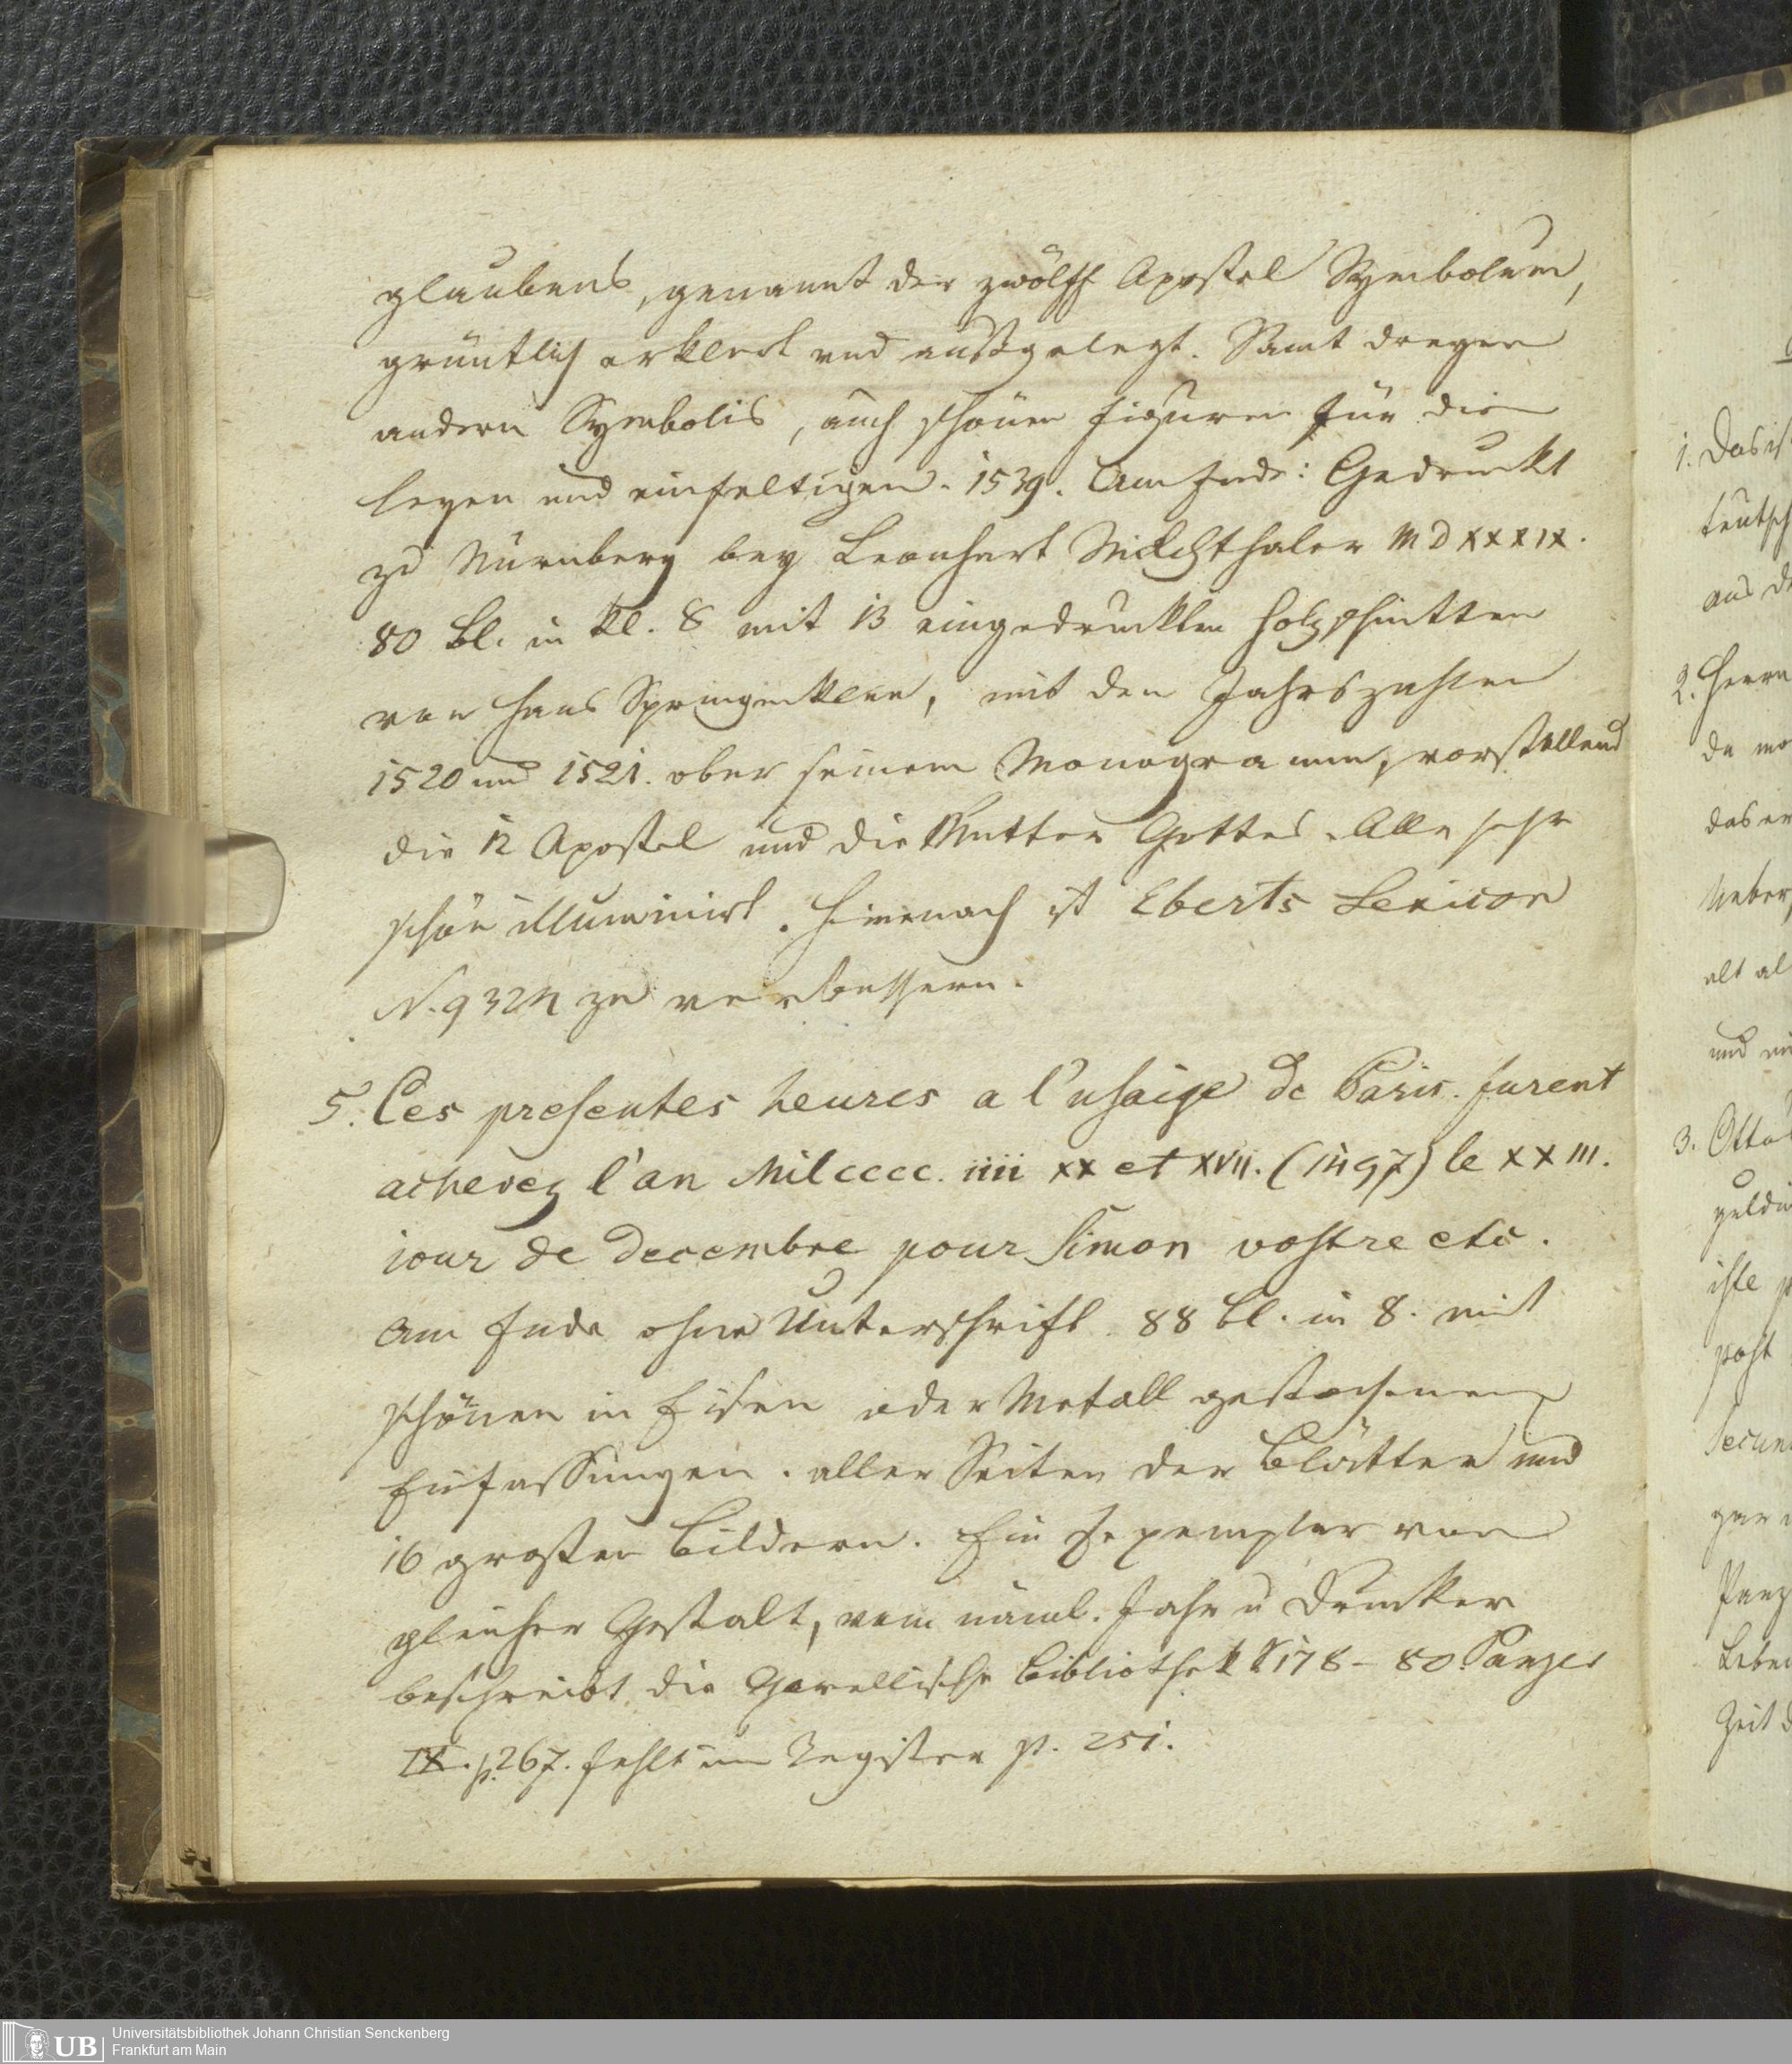 glaubens, genannt der zwölff Apostel Symbolum,
grüntlich erklert vnd außgelegt. Samt dreyen
andern Symbolis, auch schönen Figuren für die
leyen und einfeltigen. 1539. Am Ende: Gedruckt
zu Nürnberg bey Leonhart Milchthaler MDXXXIX.
80 Bl. in kl. 8 mit 13 eingedruckten Holzschnitten
von Hans Springinklee, mit den Jahrszahlen
1520 und 1521. ober seinem Monogramm, vorstellend
die 12 Apostel und die Mutter Gottes. Alle sehr
schön illuminirt. Hienach ist Eberts Lexicon
N. 9324 zu verbessern.
5. Ces presentes heures a l'usaige de Paris. furent
achevez l'an Milcccc. iiii xx et xvii. (1497) le XXIII.
jour de decembre pour Simon vostre etc.
Am Ende ohne Unterschrift. 88 Bl. in 8. mit
schönen in Eisen oder Metall gestochenen
Einfassungen. aller Seiten der Blätter und
16 großen Bildern. Ein Exemplar von
gleicher Gestalt, vom näml. Jahr u Drucker
beschreibt die Garellische Bibliothek S 178-80. Panzer
IX. p. 267. fehlt im Register p. 251.
1. Das
teutsch
aus
2. Herrn
da
das er
Ueber
alt al
und
3. Otto
iste
post
Secun
Panz
Zeit
UB
Universitätsbibliothek Johann Christian Senckenberg
Frankfurt am Main